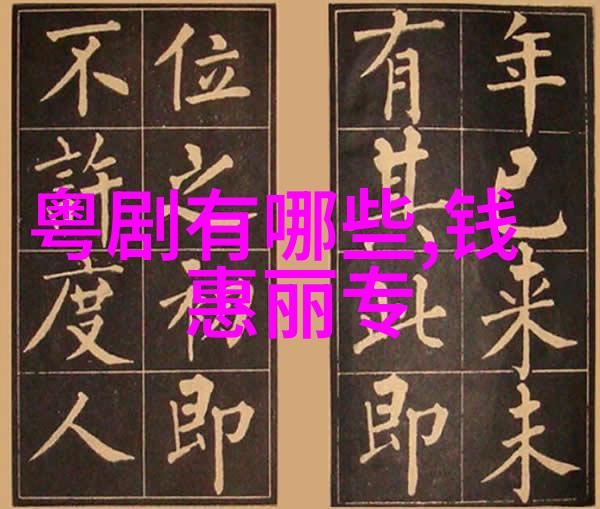 粤剧有哪些,钱
惠丽专
年已来未
有其此即
位之即
不許度人